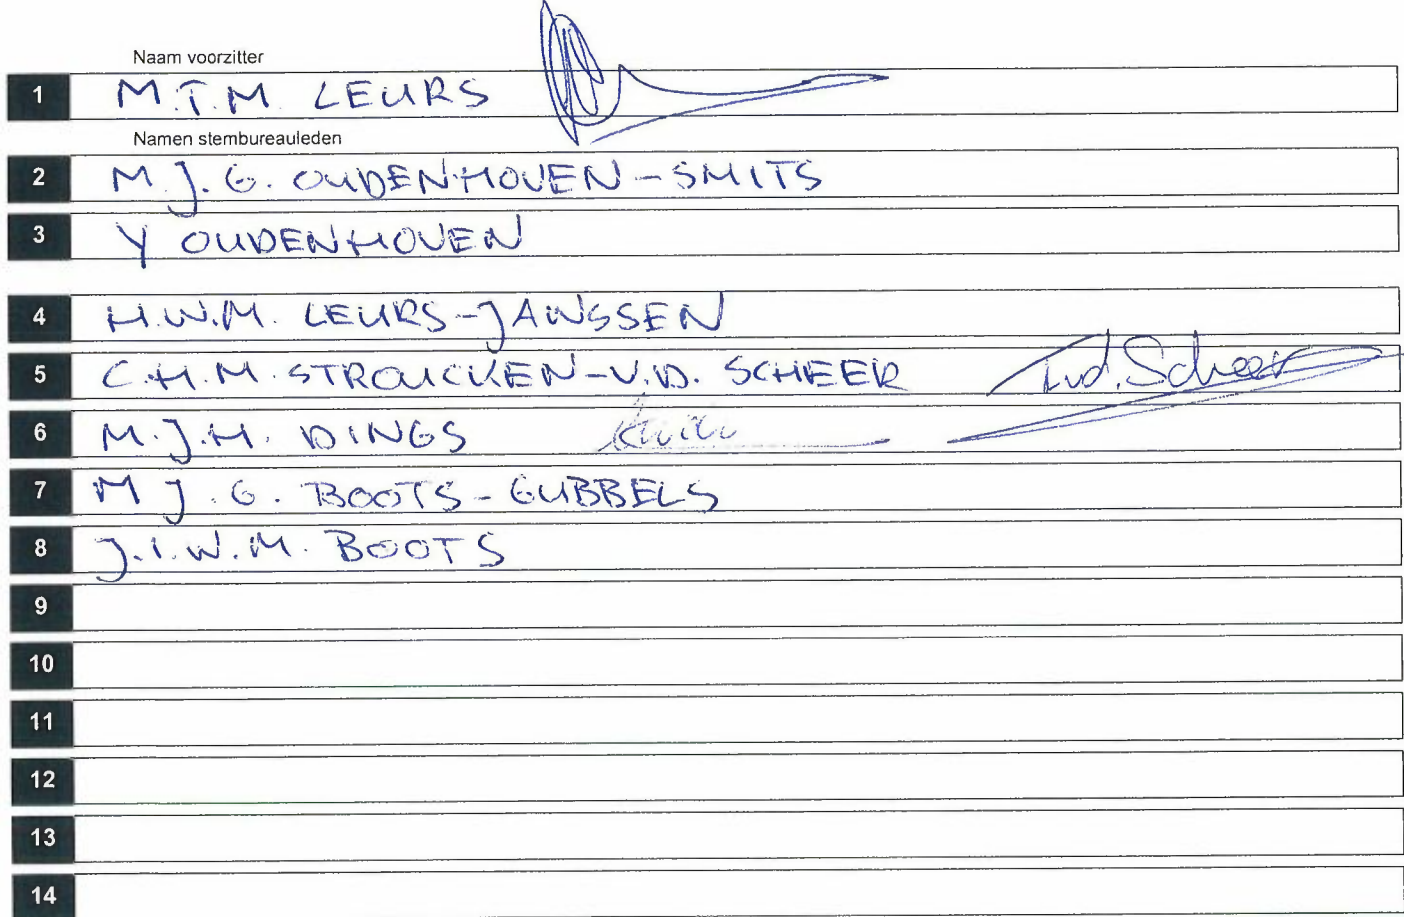 Naam voorzitter
1 M.T.M. LEURS
Namen stembureauleden
2 M.J.G. OUDENHOVEN-SMITS
3 Y OUDENHOVEN
4 H.W.M. LEURS-JANSSEN
5 C.H.M. STROUCKEN-V.D. SCHEER v.d. Scheer
6 M.J.H. DINGS
7 M J.G. BOOTS-GUBBELS
8 J.I.W.M. BOOTS
9
10
11
12
13
14